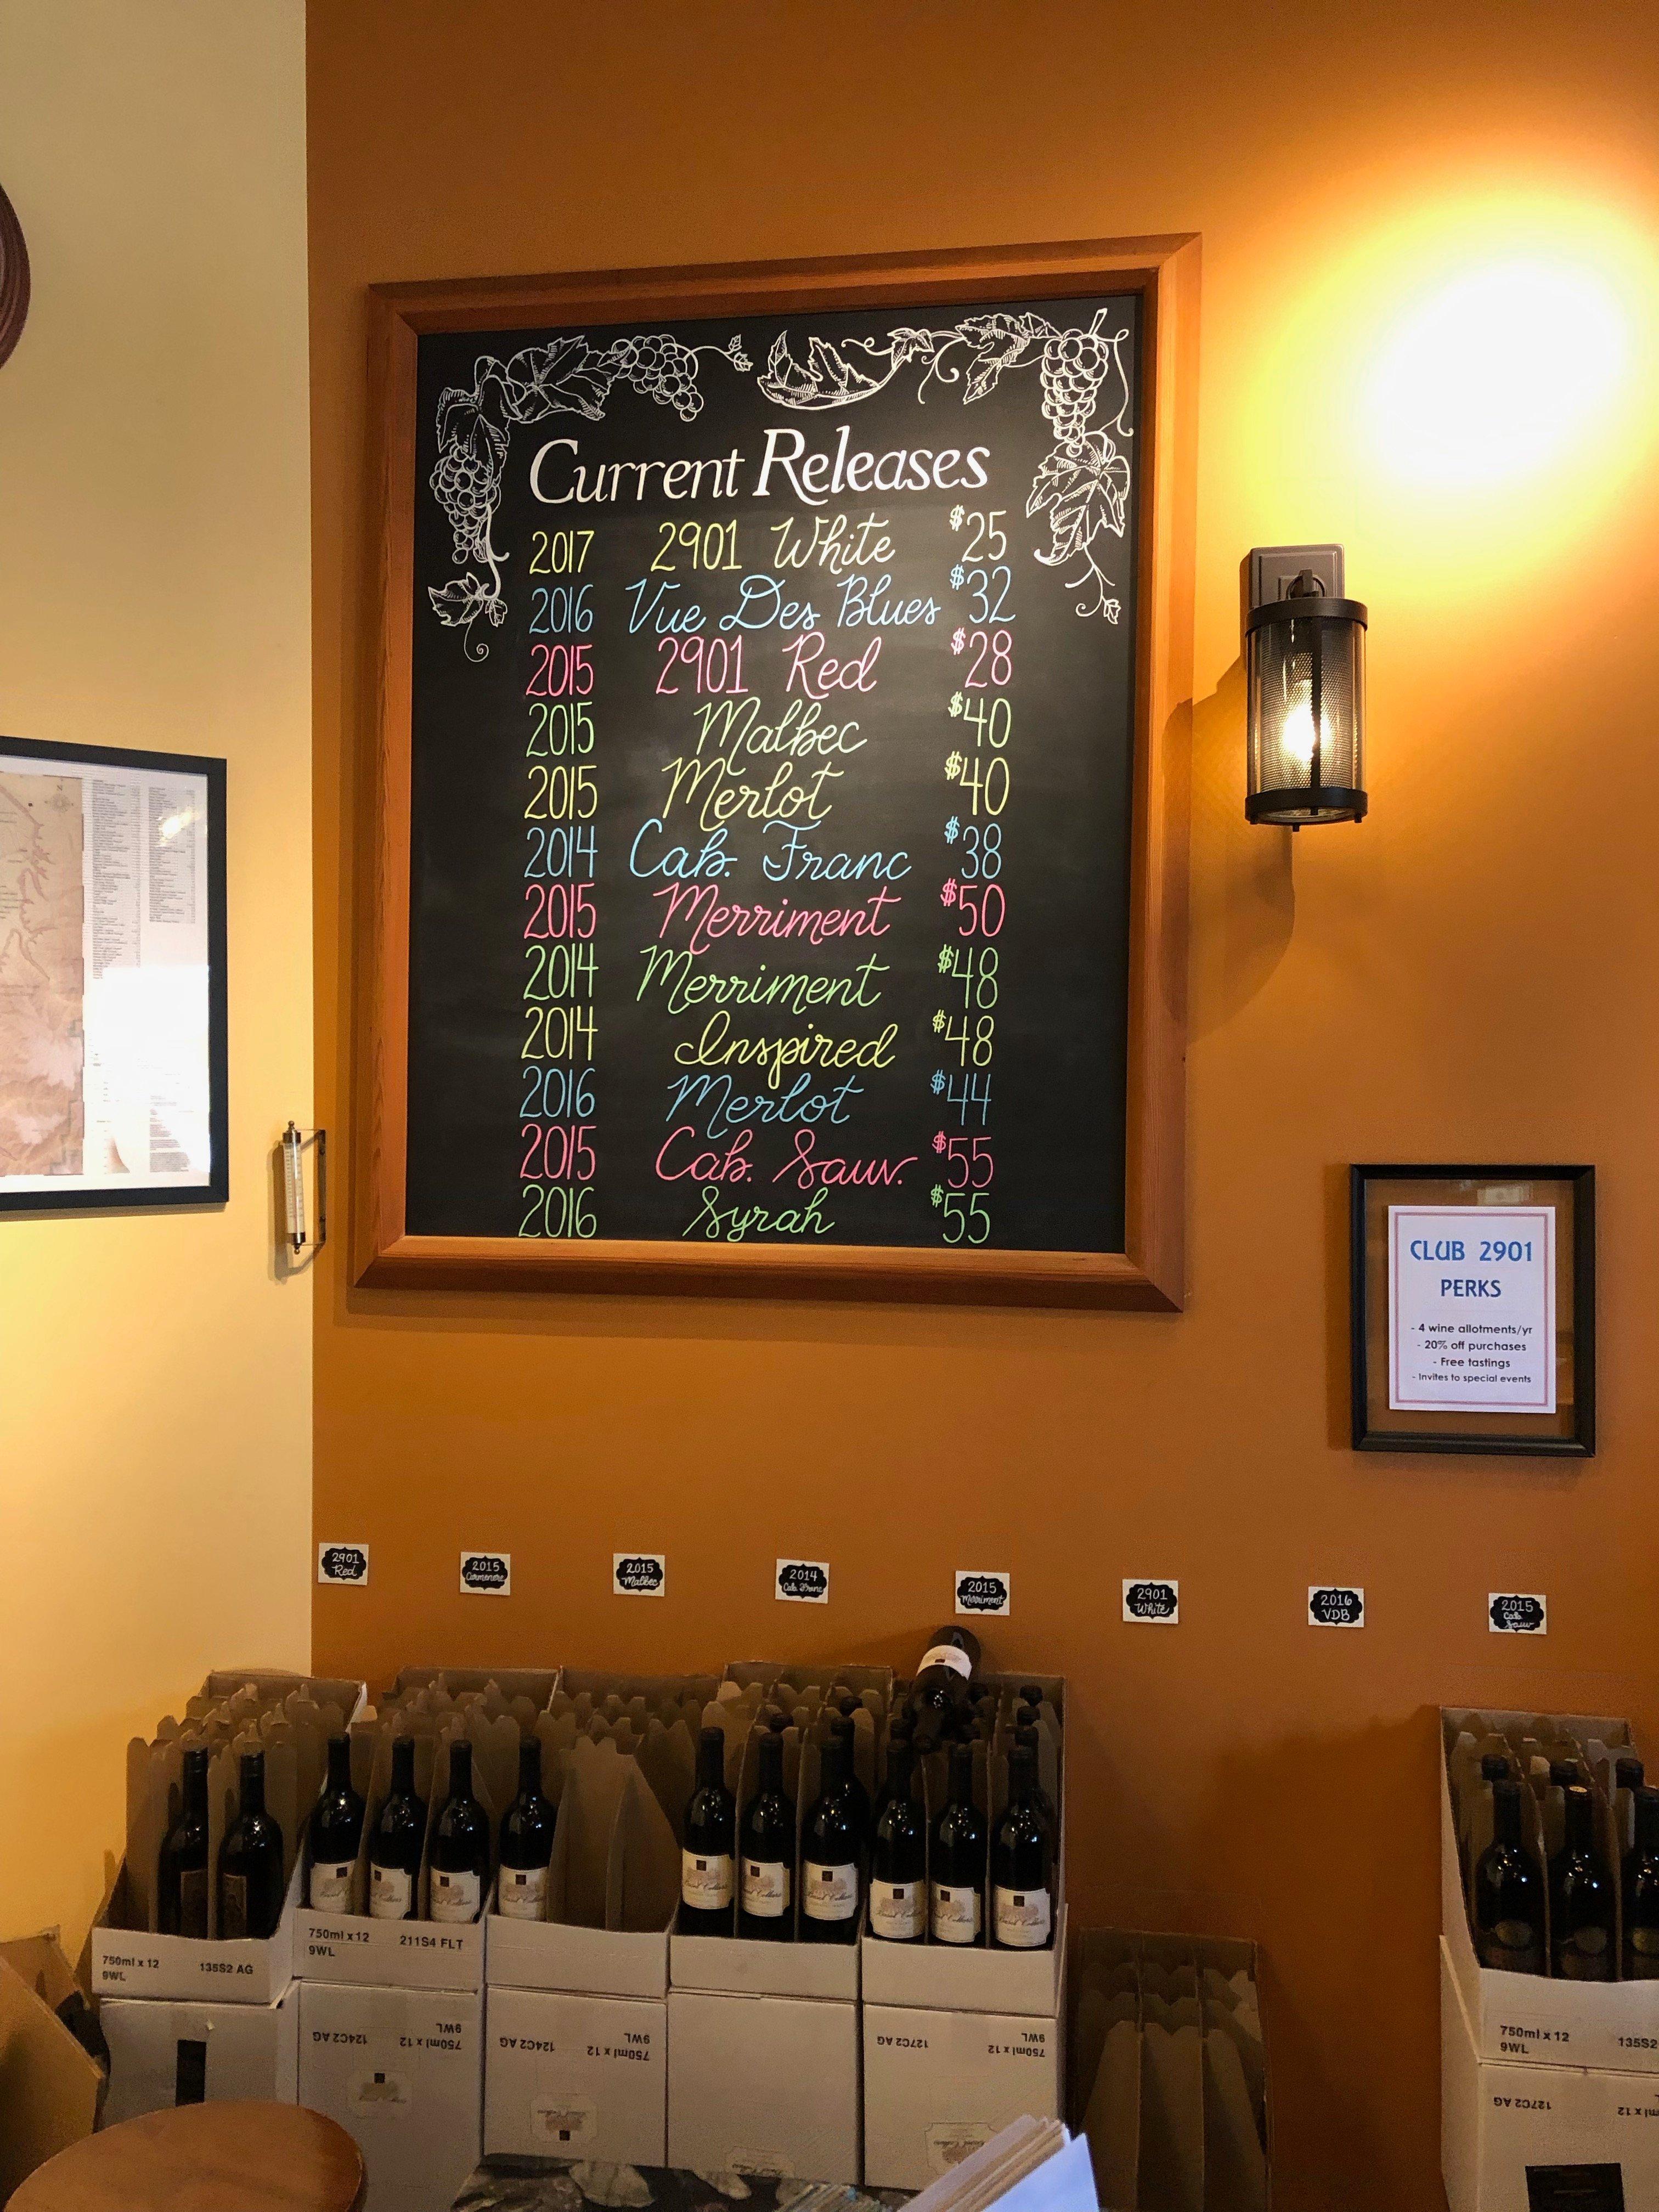 Current Releases
2017 2901 White $25
2016 Vue Des Blues $32
2015 2901 Red $28
2015 Malbec $40
2015 Merlot $40
2014 Cab. Franc $38
2015 Merriment $50
2014 Merriment $48
2014 Inspired $48
2016 Merlot $44
2015 Cab. Sauv. $55
2016 Syrah $55
CLUB 2901
PERKS
- 4 wine allotments/yr
- 20% off purchases
- Free tastings
- Invites to special events
2901
Red
2015
Carmenere
2015
Malbec
2014
Cab. Franc
2015
Merriment
2901
White
2016
VDB
2015
Cab
Sauv
750ml x 12
9WL
135S2 AG
750ml x 12
9WL
211S4 FLT
750ml x 12
9WL
124C2 AG
750ml x 12
9WL
124C2 AG
750ml x 12
9WL
127C2 AG
750ml x 12
9WL
135S2
127C2 AG